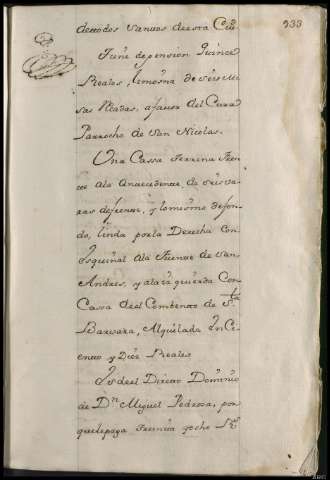 933
de todos Santos de esta Ciu.d
Tiene de pension Quince
Reales, limosna de seis Mi-
sas Rezadas, a favor del Cura
Parrocho de San Nicolas.
Una Cassa Terrena Fren-
te ala Antecedente de seis va-
ras defrente, y lomismo defon-
do, linda porla Derecha Con
Esquina ala Fuente de San
Andres, y ala izquierda Con
Cassa del Combento de S.ta
Barvara, Alquilada En Ci-
ento y Diez Reales
Es del Directo Dominio
de D.n Miguel Pedrosa, por
quelepaga Treinta yocho R.s